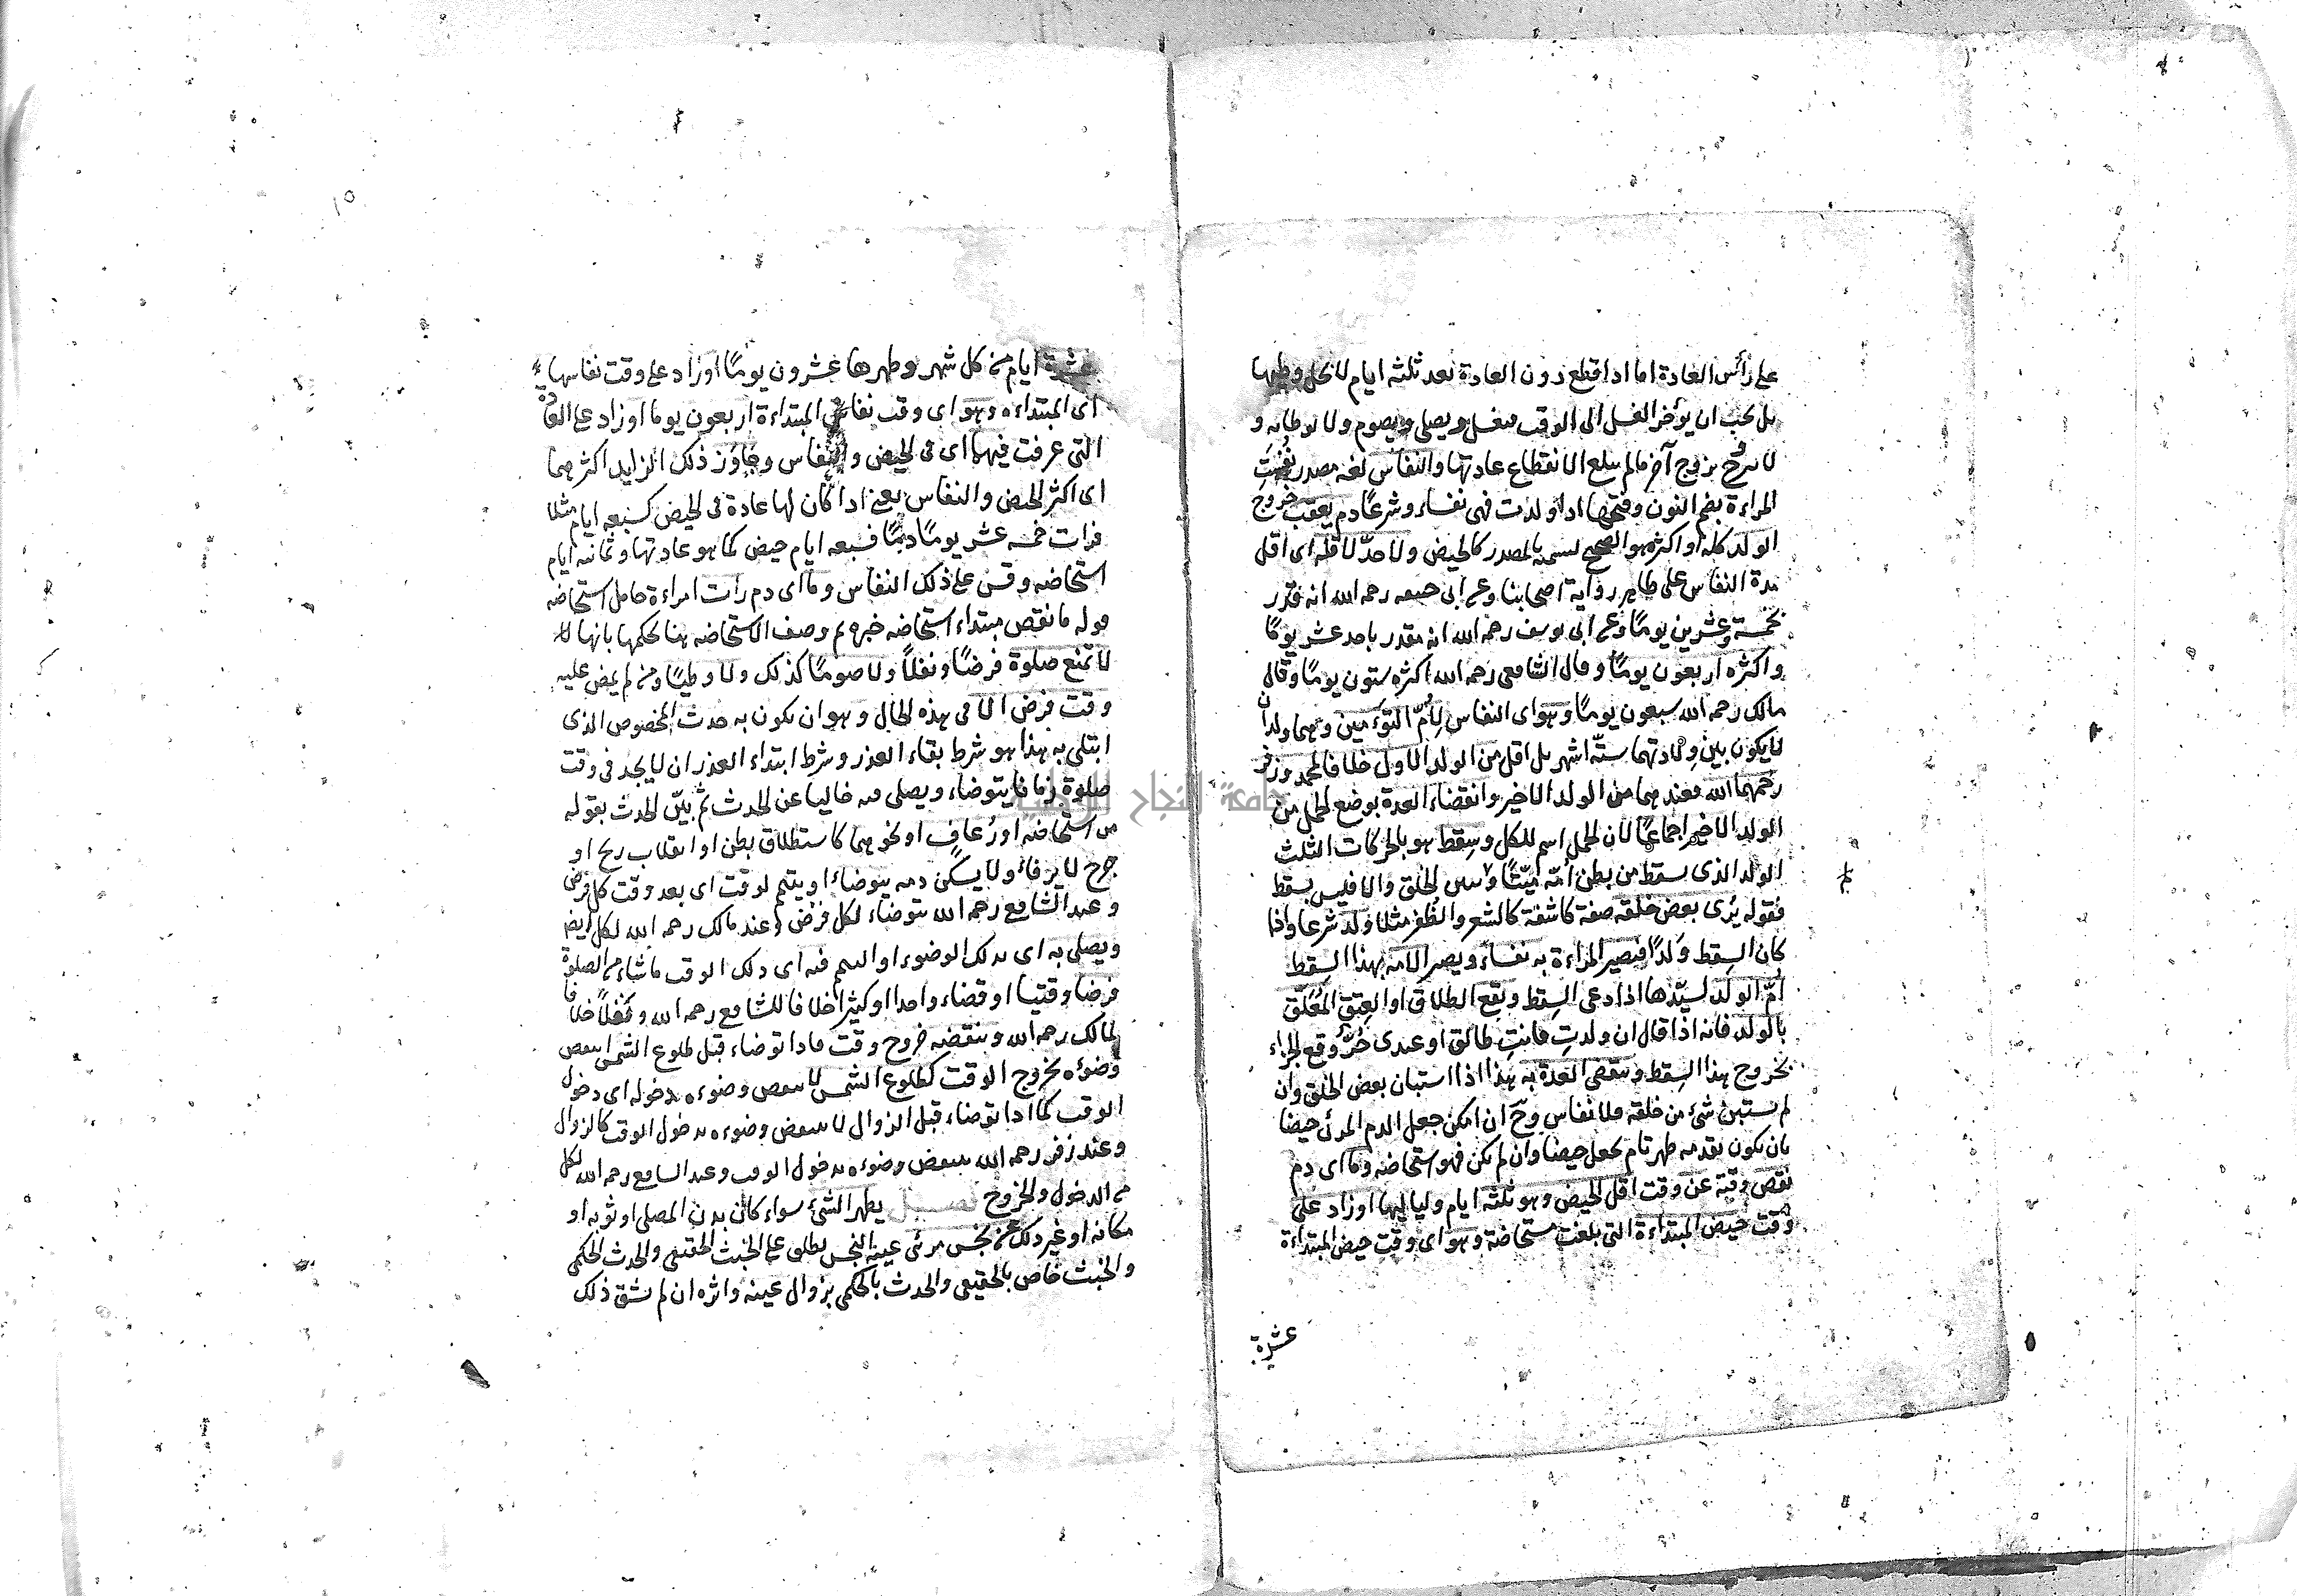 على رأس العادة اما اذا قطع دون العادة بعد ثلثه ايام لا يحل وطيها
بل يجب ان يؤخر الغسل الى الوقت فتغسل ويصلي ويصوم ولا توطا به و
لا تتزوج بزوج آخر ما لم يبلع الانقطاع عادتها والنفاس لغة مصدر نُفِسَتِ
المراءة بضم النون وفتحها اذا ولدت فهى نفساء وشرعًا دم يعقب خروج
الولد كله او اكثره هو الصحيح تسمية بالمصدر كالحيض ولا حدّ لاقله اى اقل
مدة النفاس على ظاهر رواية اصحابنا وعن ابى حنيفه رحمه الله انه قدّر
بخمسة وعشرين يومًا وعن ابى يوسف رحمه الله انه مقدر باحد عشر يومًا
واكثره اربعون يومًا وقال الشافعى رحمه الله اكثره ستون يومًا وقال
مالك رحمه الله سبعون يومًا وهو اى النفاس لِأُمّ التوءَمين وهما ولدان
لا يكون بين ولادتهما ستّة اشهر بل اقل من الولد الاول خلافا لمحمد وزفر
رحمهما الله فعندهما من الولد الاخير وانقضاء العدة بوضع الحمل من
الولد الاخير اجماعًا لان الحمل اسم للكل وسِقط هو بالحركات الثلث
الولد الذى يسقط من بطن أمّه ميّتًا و الخلق والا فليس بسقط
فقوله يُرى بعض خلقه صفة كاشفة كالشعر والظفر مثلا ولد شرعا واذا
كان السِقط وَلدًا فتصير المراءة به نفساء ويصير الامه بهذا السِقط
أُمّ الولد لسيّدها اذا دعى السِقط ويقع الطلاق او العِتق المُعلّق
بالولد فانه اذا قال ان ولدتِ فانتِ طالق او عبدى حُرّ وقع الجزاء
بخروج هذا السِقط وتنقضى العدة به هذا اذا استبان بعض الخلق وان
لم يستبن شئ من خلقه فلا نفاس وح ان امكن جعل الدم المرئ حيضا
بان يكون تقدمه طهر تام يجعل حيضا وان لم يكن فهو استحاضه وما اى دم
نقص وقته عن وقت اقل الحيض وهو ثلثه ايام ولياليها او زاد على
وقت حيض المبتداءة التى بلغت مستحاضة وهو اى وقت حيض المبتداءة
عشرة
عشرة ايام من كل شهر وطهرها عشرون يومًا او زاد على وقت نفاسها
اى المبتداءه وهو اى وقت نفاس المبتداءة اربعون يوما او زاد على العادة
التى عرفت فيهما اى فى الحيض والنفاس وجاوَز ذلك الزايد اكثرهما
اى اكثر الحيض والنفاس يعنى اذا كان لها عادة فى الحيض كسبعه ايام مثلا
فرات خمسه عشر يومًا دمًا فسبعه ايام حيض كما هو عادتها وثمانيه ايام
استحاضه وقس على ذلك النفاس وما اى دم رأت امراءة حامل استحاضه
قوله ما نقص مبتداء استحاضه خبره ثم وصف الاستحاضه هنا لحكمها بانها
لا تمنع صلوة فرضًا ونفلًا ولا صومًا كذلك ولا وطيًا ومن لم يمض عليه
وقت فرض الا فى هذه الحال وهو ان يكون به حدث المخصوص الذى
ابتلى به هذا هو شرط بقاء العذر وشرط ابتداء العذر ان لا يجد فى وقت
صلوة زمانا يتوضاء ويصلى فيه خاليا عن الحدث ثم بيّن الحدث بقوله
من استحاضه او رُعافٍ او نحوهما كاستطلاق بطن او انفلات ريح او
جرح لا يرقاء ولا يسكن دمه يتوضاء او يتيمم لوقت اى بعد وقت كل فرض
وعند الشافعى رحمه الله يتوضاء لكل فرض وعند مالك رحمه الله لكل ايض
ويصلى به اى بذلك الوضوء او التيمم فيه اى ذلك الوقت ما شاء من الصلوة
فرضا وقتيا او قضاء واحدا او كثيرا خلافا للشافعى رحمه الله ونفلًا خلافا
لمالك رحمه الله وينقضه خروج وقت فاذا توضاء قبل طلوع الشمس انتقض
وضوءه بخروج الوقت كطلوع الشمس لا ينتقض وضوءه بدخوله اى دخول
الوقت كما اذا توضاء قبل الزوال لا ينتقض وضوءه بدخول الوقت كالزوال
وعند زفر رحمه الله ينتقض وضوءه بدخول الوقت وعند الشافعى رحمه الله لكل
من الدخول والخروج فصل يطهر الشئ سواء كان بدن المصلى او ثوبه او
مكانه او غير ذلك عن نجس مرئى عينه النجس يطلق على الخبث الحقيقى والحدث الحكمى
والخبث خاص بالحقيقى والحدث بالحكمى بزوال عينه واثره ان لم يشق ذلك
جامعة النجاح الوطنية